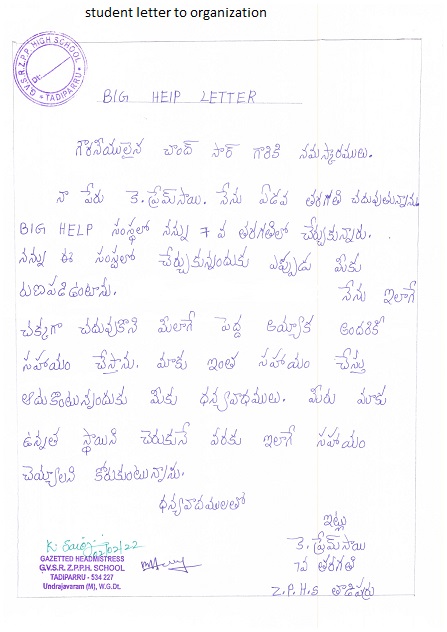 student letter to organization
G.V.S.R.Z.P.P. HIGH SCHOOL
Dt:
* TADIPARRU *
BIG HElP LETTER
గౌరనీయులైన చాంద్ సార్ గారికి నమస్కారములు.
నా పేరు కె. ప్రేమ్‌సాయి. నేను ఏడవ తరగతి చదువుతున్నాను.
BIG HELP సంస్థలో నన్ను 7 వ తరగతిలో చేర్చుకున్నారు.
నన్ను ఈ సంస్థలో చేర్చుకున్నందుకు ఎప్పుడు మీకు
రుణపడిఉంటాను. నేను ఇలాగే
చక్కగా చదువుకొని మీలాగే పెద్ద అయ్యాక అందరికి
సహాయం చేస్తాను. మాకు ఇంత సహాయం చేస్తు
ఆదుకొంటున్నందుకు మీకు ధన్యవాధములు. మీరు మాకు
ఉన్నత స్థాయిని చేరుకునే వరకు ఇలాగే సహాయం
చెయ్యాలని కోరుకుంటున్నాను.
ధన్యవాదములతో
ఇట్లు
కె. ప్రేమ్‌సాయి
7వ తరగతి
Z.P.H.S తాడిపర్రు
02/02/22
GAZETTED HEADMISTRESS
G.V.S.R. Z.P.P.H. SCHOOL
TADIPARRU - 534 227
Undrajavaram (M), W.G.Dt.